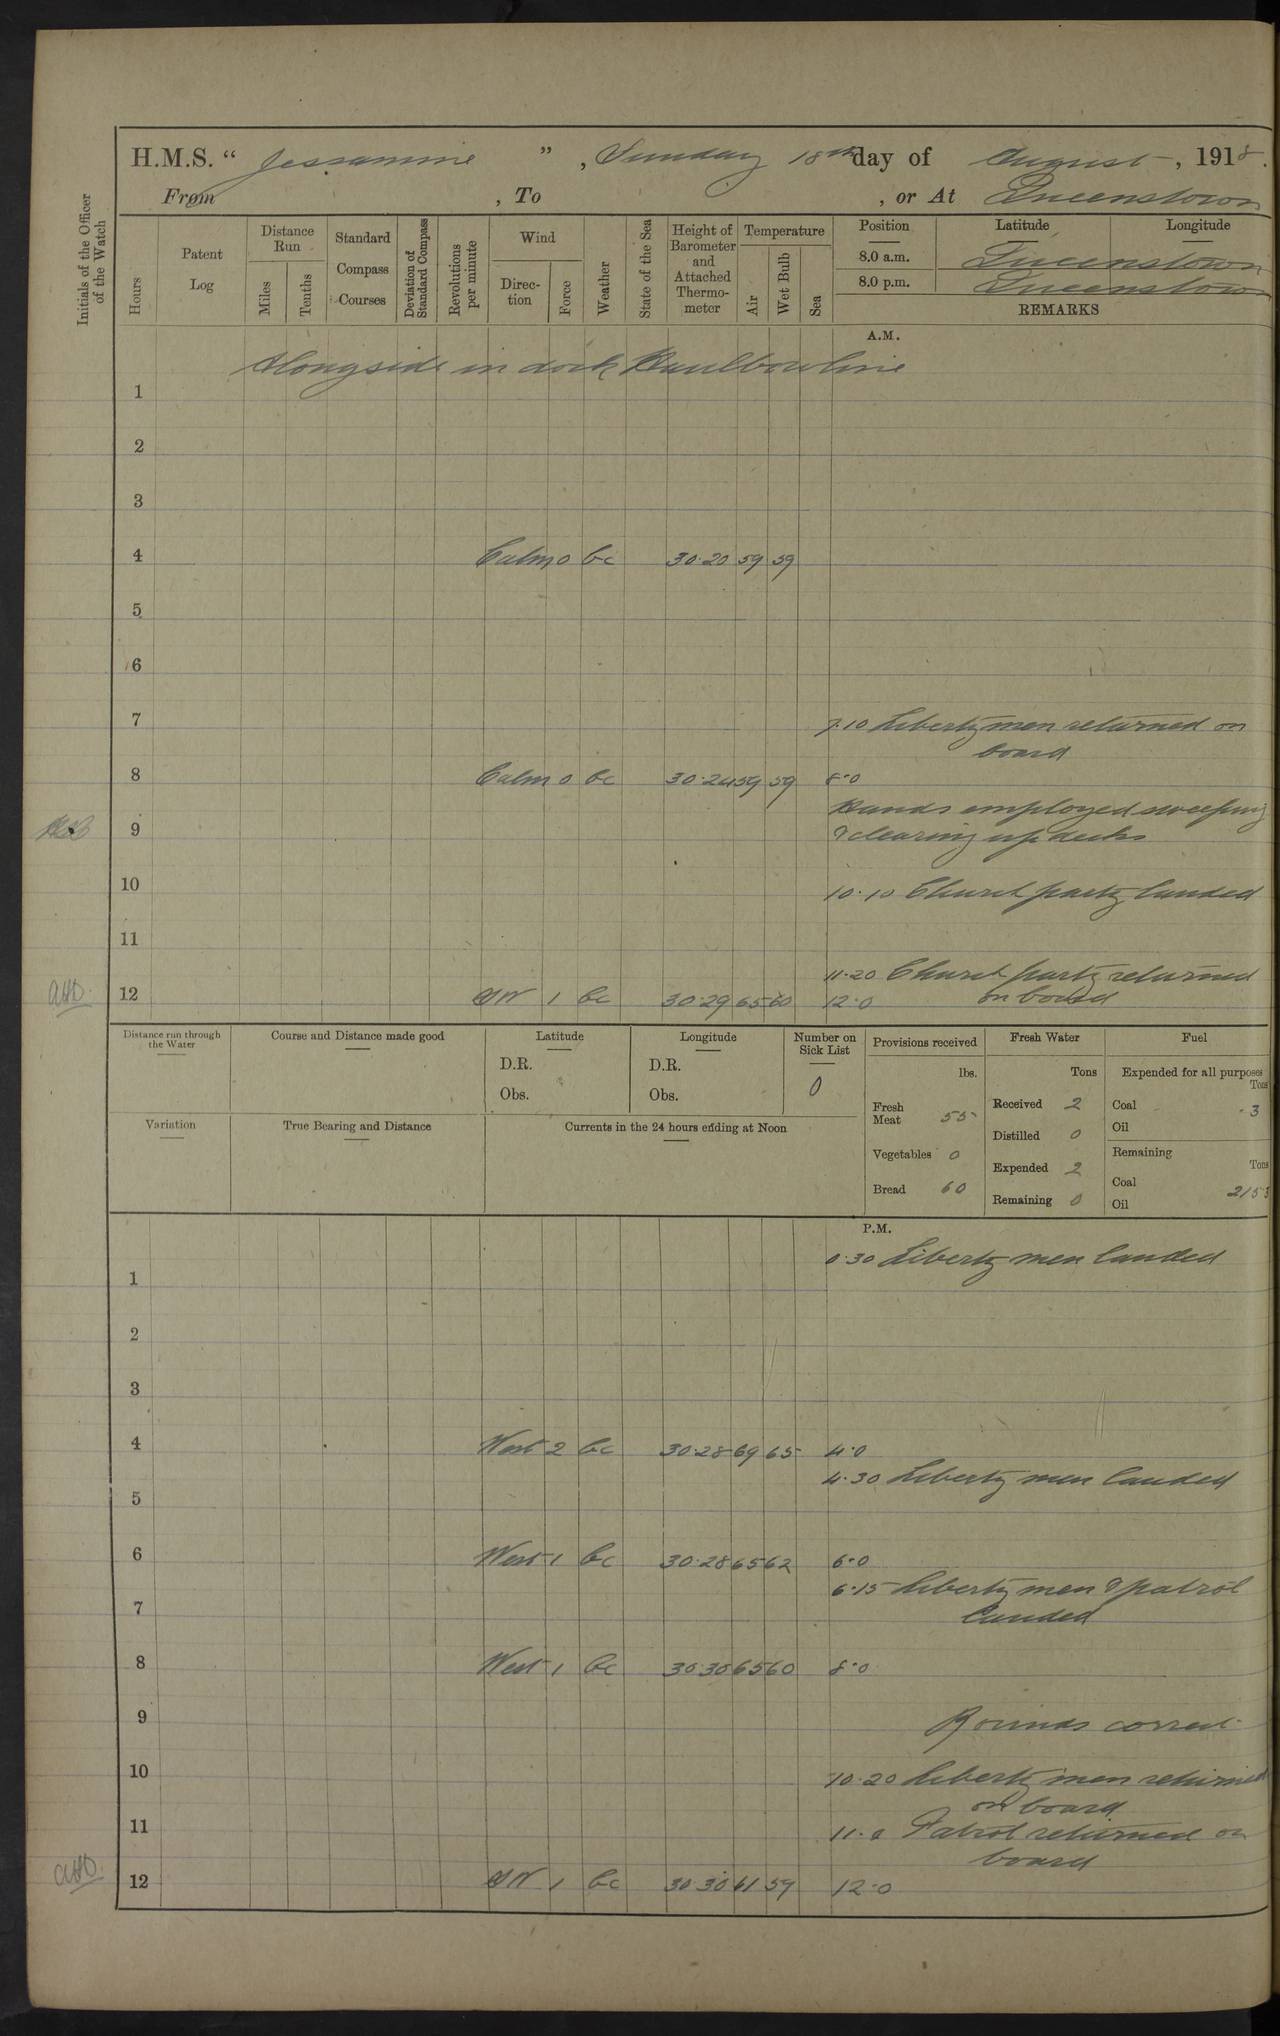 H.M.S. “ Jessamine ” , Sunday 18th day of August , 1918.
From , To , or At Queenstown
Initials of the Officer of the Watch
Hours
Patent Log
Distance Run
Miles
Tenths
Standard Compass Courses
Deviation of Standard Compass
Revolutions per minute
Wind
Direc-tion
Force
Weather
State of the Sea
Height of Barometer and Attached Thermo-meter
Temperature
Air
Wet Bulb
Sea
Position Latitude Longitude
8.0 a.m. Queenstown
8.0 p.m. Queenstown
REMARKS
A.M.
Alongside in dock Haulbowline
1
2
3
4 Calm 0 bc 30.20 59 59
5
6
7 7.10 Liberty men returned on
board
8 Calm 0 bc 30.24 59 59 8.0
Hands employed sweeping
9 & clearing up decks
10 10.10 Church party landed
11
11.20 Church party returned
on board
12 SW 1 bc 30.29 65 60 12.0
Distance run through the Water
Course and Distance made good
Latitude
D.R.
Obs.
Longitude
D.R.
Obs.
Number on Sick List
0
Provisions received
lbs.
Fresh Meat 55
Vegetables 0
Bread 60
Fresh Water
Tons
Received 2
Distilled 0
Expended 2
Remaining 0
Fuel
Expended for all purposes
Tons
Coal 3
Oil
Remaining
Tons
Coal 215.3
Oil
Variation
True Bearing and Distance
Currents in the 24 hours ending at Noon
P.M.
0.30 Liberty men landed
1
2
3
4 West 2 bc 30.28 69 65 4.0
4.30 Liberty men landed
5
6 West 1 bc 30.28 65 62 6.0
6.15 Liberty men & patrol
7 landed
8 West 1 bc 30.30 65 60 8.0
9 Rounds correct
10 10.20 Liberty men returned
on board
11 11.0 Patrol returned on
board
12 SW 1 bc 30.30 61 59 12.0